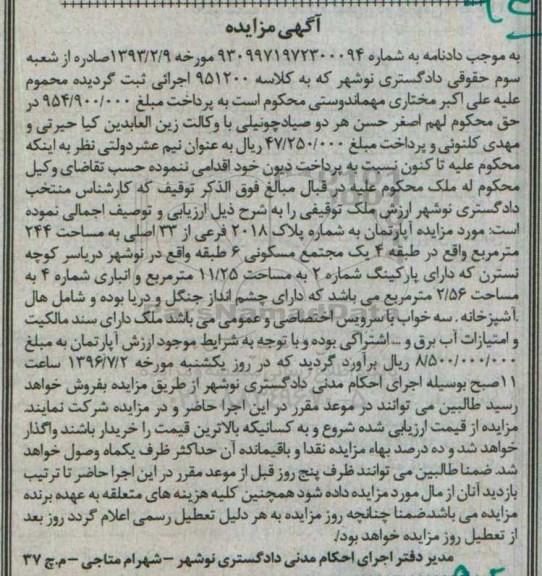 آگهی مزایده
به موجب دادنامه به شماره ۹۳۰۹۹۷۱۹۷۲۳۰۰۰۹۴ مورخه ۱۳۹۳/۲/۹صادره از شعبه
سوم حقوقی دادگستری نوشهر که به کلاسه ۹۵۱۲۰۰ اجرائی ثبت گردیده محموم
علیه علی اکبر مختاری مهماندوستی محکوم است به پرداخت مبلغ ۹۵۴/۹۰۰/۰۰۰ در
حق محکوم لهم اصغر حسن هر دو صیادچونیلی با وکالت زین العابدین کیا حیرتی و
مهدی کلنوئی و پرداخت مبلغ ۴۷/۲۵۰/۰۰۰ ریال به عنوان نیم عشردولتی نظر به اینکه
محکوم علیه تا کنون نسبت به پرداخت دیون خود اقدامی ننموده حسب تقاضای وکیل
محکوم له ملک محکوم علیه در قبال مبالغ فوق الذکر توقیف که کارشناس منتخب
دادگستری نوشهر ارزش ملک توقیفی را به شرح ذیل ارزیابی و توصیف اجمالی نموده
است: مورد مزایده آپارتمان به شماره پلاک ۲۰۱۸ فرعی از ۳۳ اصلی به مساحت ۲۴۴
مترمربع واقع در طبقه ۴ یک مجتمع مسکونی ۶ طبقه واقع در نوشهر دریاسر کوچه
نسترن که دارای پارکینگ شماره ۲ به مساحت ۱۱/۲۵ مترمربع و انباری شماره ۴ به
مساحت ۲/۵۶ مترمربع می باشد که دارای چشم انداز جنگل و دریا بوده و شامل هال
.آشپزخانه . سه خواب با سرویس اختصاصی و عمومی می باشد ملک دارای سند مالکیت
و امتیازات آب برق و ... اشتراکی بوده و با توجه به شرایط موجود ارزش آپارتمان به مبلغ
۸/۵۰۰/۰۰۰/۰۰۰ ریال برآورد گردید که در روز یکشنبه مورخه ۱۳۹۶/۷/۲ ساعت
۱۱صبح بوسیله اجرای احکام مدنی دادگستری نوشهر از طریق مزایده بفروش خواهد
رسید طالبین می توانند در موعد مقرر در این اجرا حاضر و در مزایده شرکت نمایند.
مزایده از قیمت ارزیابی شده شروع و به کسانیکه بالاترین قیمت را خریدار باشند واگذار
خواهد شد و ده درصد بهاء مزایده نقدا و باقیمانده آن حداکثر ظرف یکماه وصول خواهد
شد. ضمنا طالبین می توانند ظرف پنج روز قبل از موعد مقرر در این اجرا حاضر تا ترتیب
بازدید آنان از مال مورد مزایده داده شود همچنین کلیه هزینه های متعلقه به عهده برنده
مزایده می باشد.ضمنا چنانچه روز مزایده به هر دلیل تعطیل رسمی اعلام گردد روز بعد
از تعطیل روز مزایده خواهد بود/.
مدیر دفتر اجرای احکام مدنی دادگستری نوشهر –شهرام متاجی –م.چ ۳۷